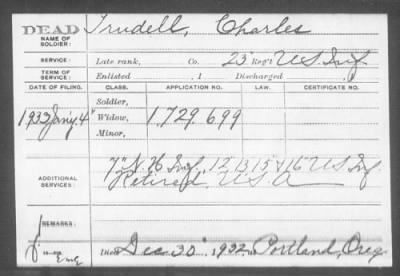 DEAD Trudell, Charles
NAME OF SOLDIER:
SERVICE: Late rank, Co. 23" Reg't U.S. Inf
TERM OF SERVICE: Enlisted , 1 Discharged , 1
DATE OF FILING. CLASS. APPLICATION NO. LAW. CERTIFICATE NO.
Soldier,
1933 Jan'y. 4" Widow, 1.729.699
Minor,
ADDITIONAL SERVICES: 7" N.H. Inf, 12, 13, 15 & 16" U.S. Inf.
Retired U.S.A
REMARKS:
Died Dec 30" 1932, Portland, Oreg